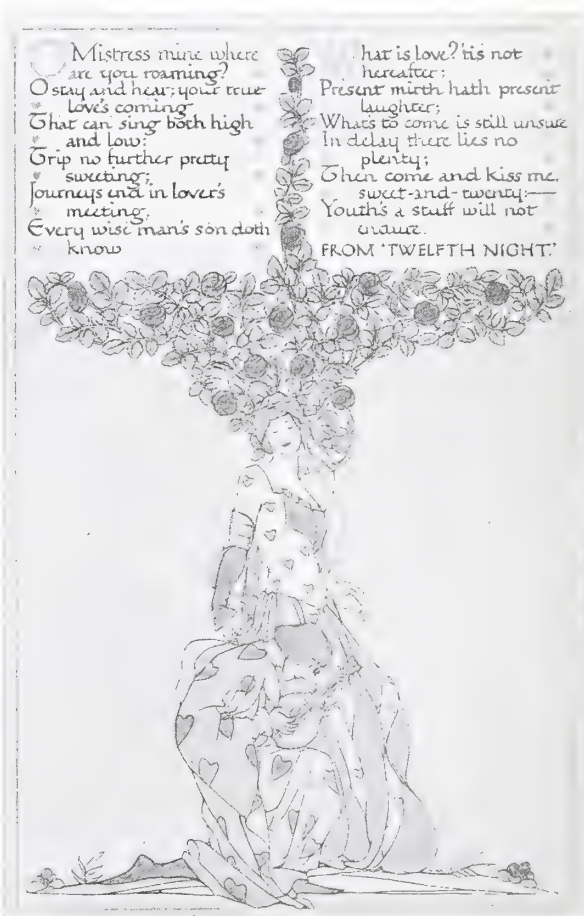 O Mistress mine where
are you roaming?
O stay and hear; your true
love's coming
That can sing both high
and low:
Trip no further pretty
sweeting;
Journeys end in lover's
meeting,
Every wise man's son doth
know
hat is love? 'tis not
hereafter;
Present mirth hath present
laughter;
Whats to come is still unsure
In delay there lies no
plenty;
Then come and kiss me,
sweet-and-twenty:—
Youth's a stuff will not
endure.
FROM 'TWELFTH NIGHT.'